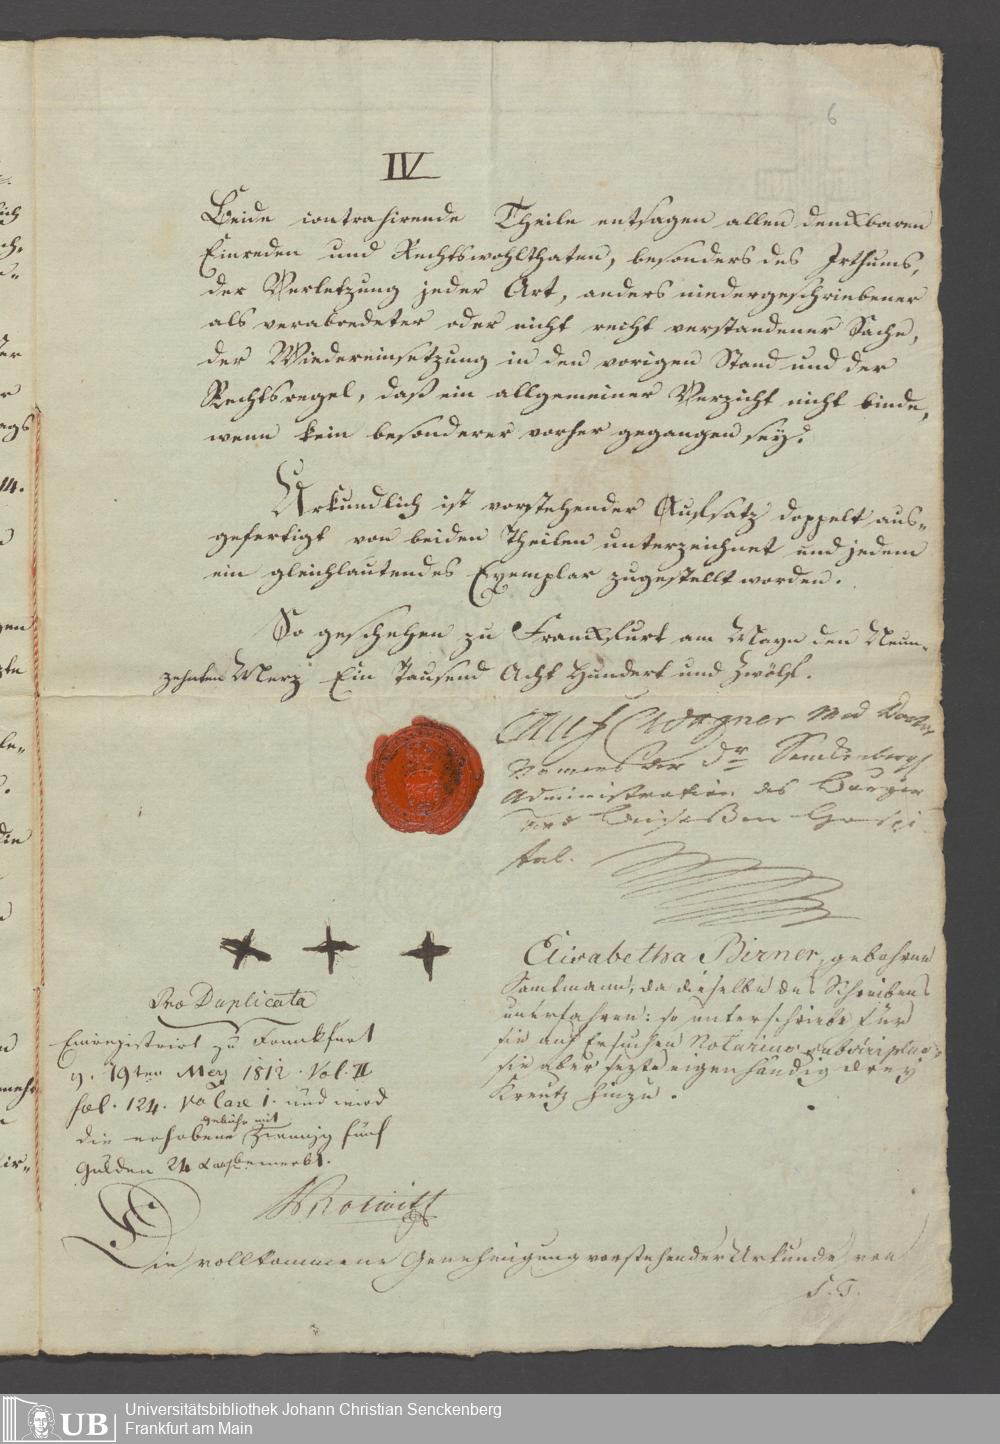 6
IV
Beide contrahirende Theile entsagen allen denckbaren
Einreden und Rechtswohlthaten, besonders des Irthums,
der Verletzung jeder Art, anders niedergeschriebener
als verabredeter oder nicht recht verstandener Sache,
der Wiedereinsetzung in den vorigen Stand und der
Rechtsregel, daß ein allgemeiner Verzicht nicht binde,
wenn kein besonderer vorher gegangen sey.
Urkundlich ist vorstehender Aufsatz doppelt aus-
gefertigt von beiden Theilen unterzeichnet und jedem
ein gleichlautendes Exemplar zugestellt worden.
So geschehen zu Franckfurt am Mayn den Neun-
zehnten Merz Ein Tausend Acht Hundert und Zwölf.
Wagner Med Doctor
Namens der Dr Senckenberg
Administration des Burger
und Beisaßen Hospi
tal.
Elisabetha Birner, gebohrne
Samtmann, da dieselbe des Schreibens
unerfahren: so unterschriebe für
sie auf Ersuchen Notarius
sie aber sezte eigenhändig drey
Kreutz hinzu.
Pro Duplicata
Einregistrirt zu Franckfurt
d. 19ten Merz 1812. Vol. II
fol. 124. Case 1. und wird
die erhobene gebühr mit Zwanzig fünf
Gulden 24 bemerkt.
Die vollkommene Genehmigung vorstehender Urkunde von
S. T.
UB
Universitätsbibliothek Johann Christian Senckenberg
Frankfurt am Main